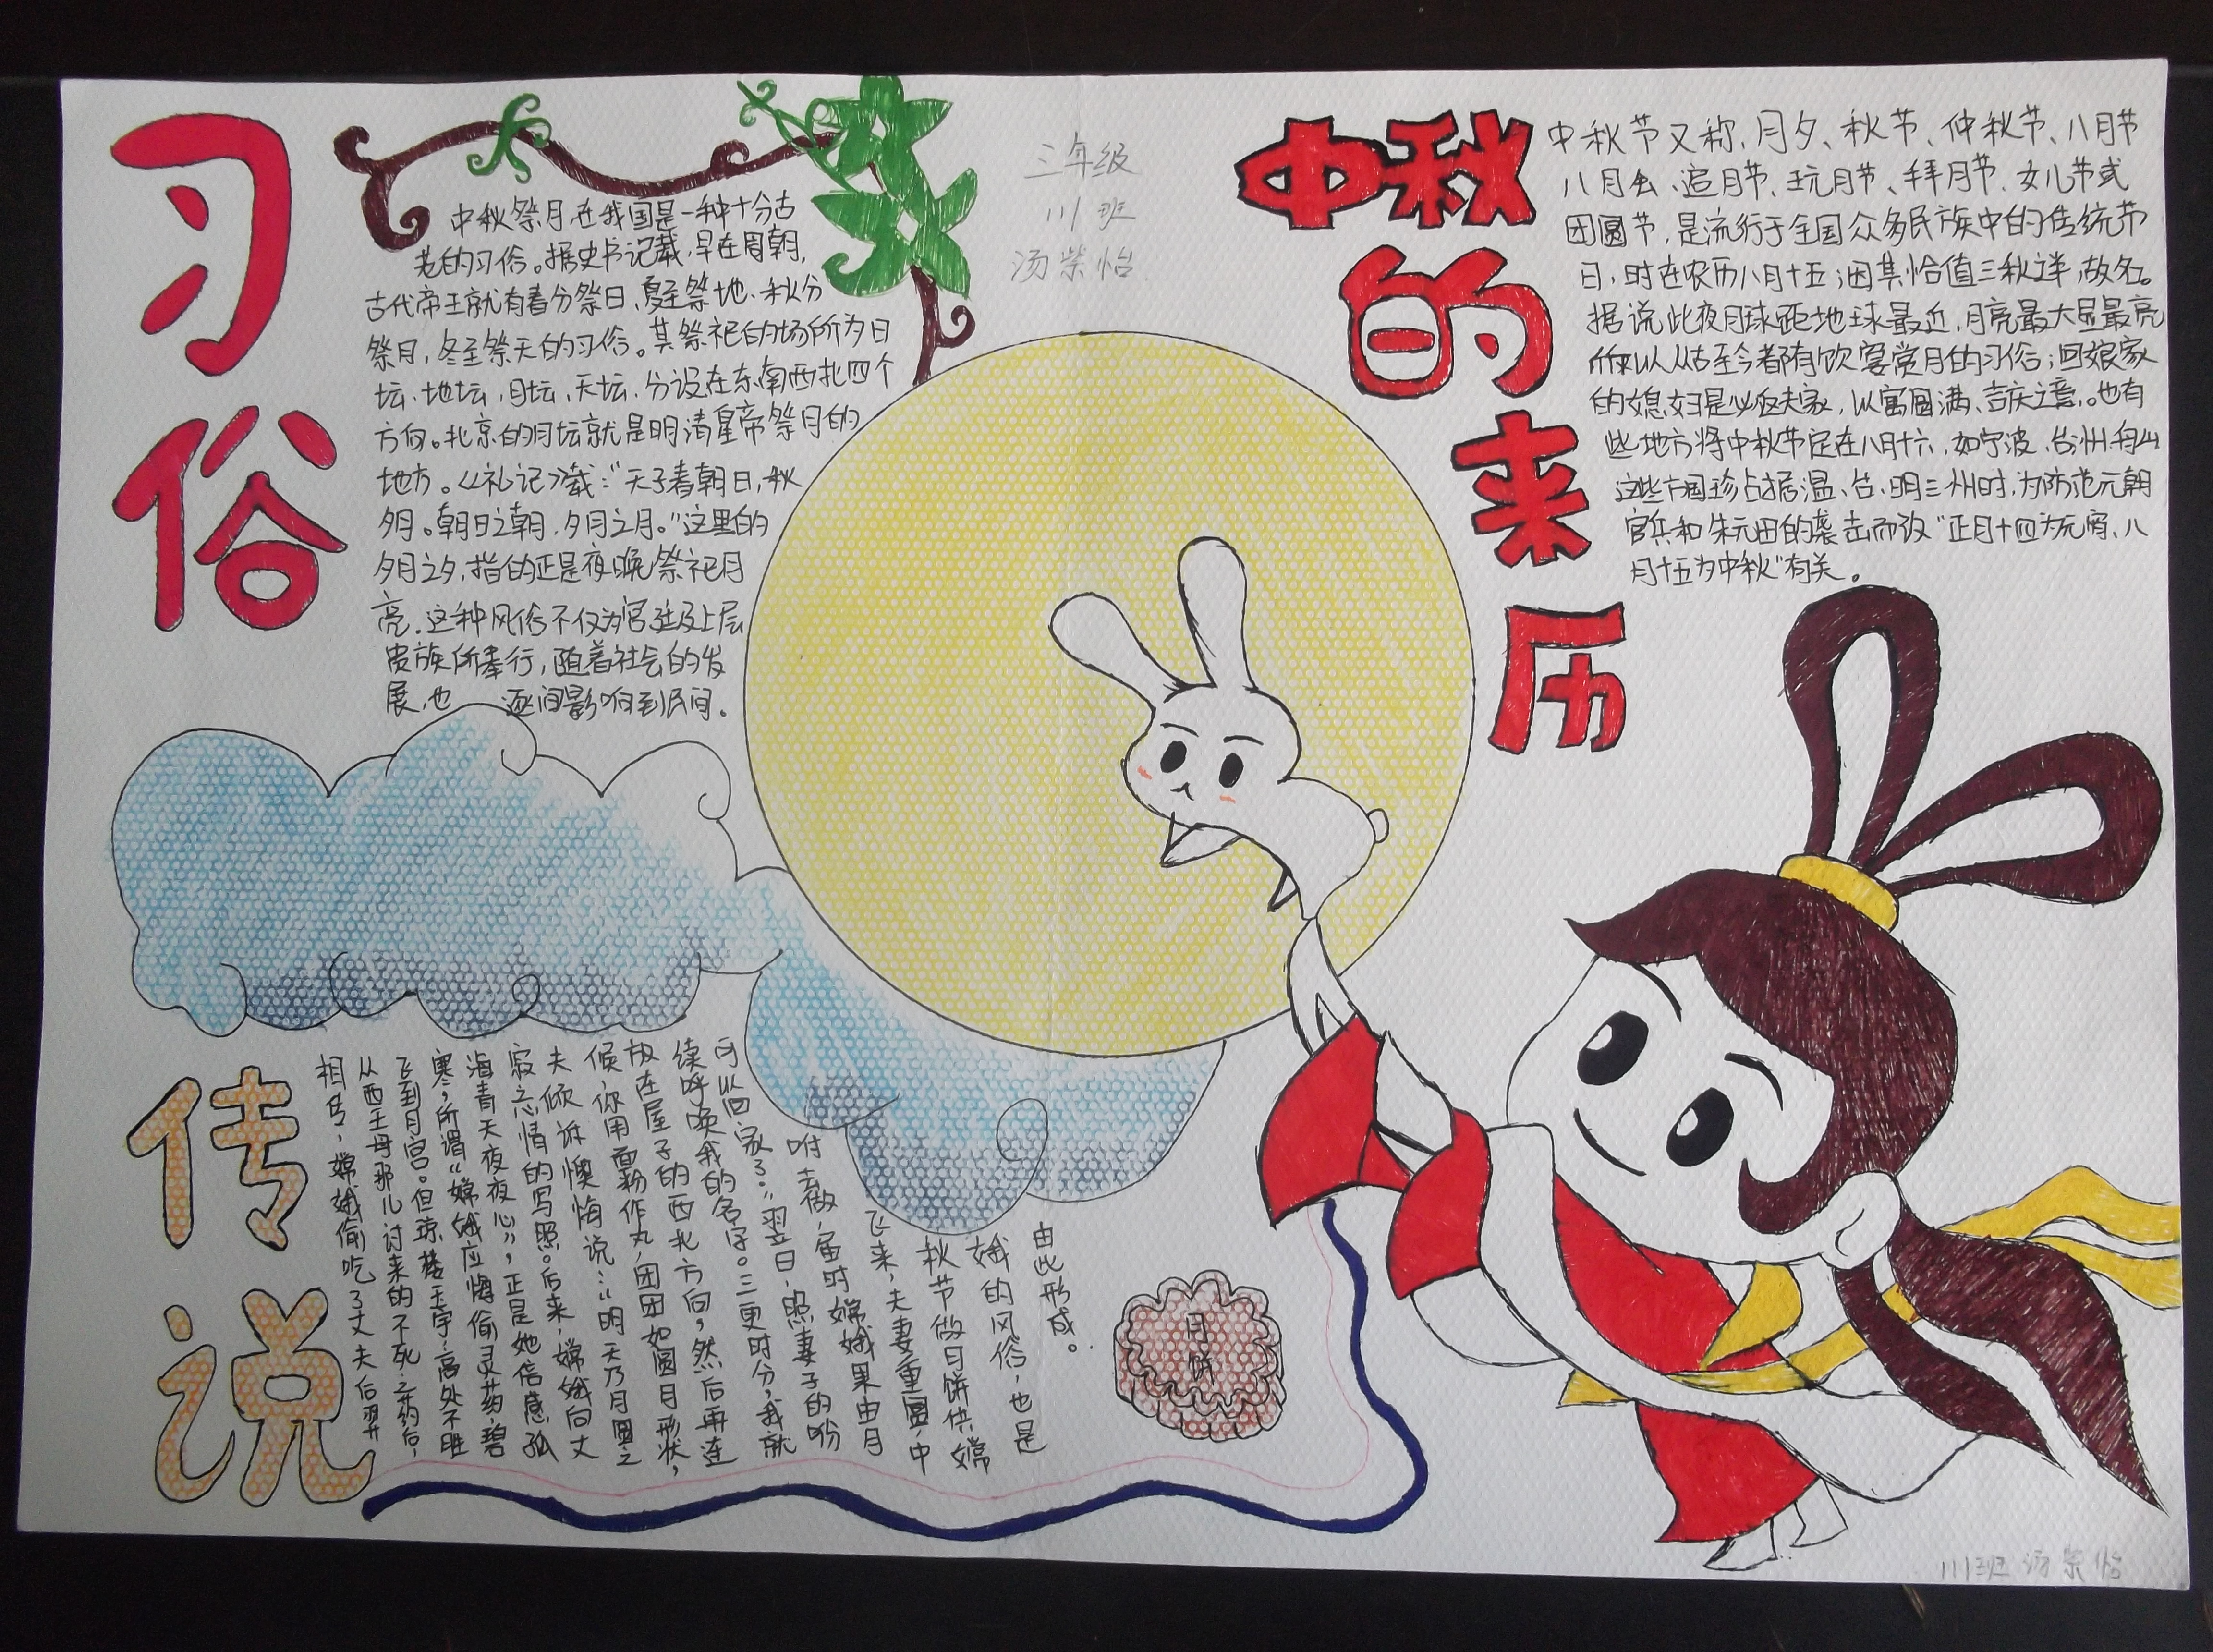 习俗
中秋祭月,在我国是一种十分古
老的习俗。据史书记载,早在周朝,
古代帝王就有春分祭日、夏至祭地、秋分
祭月,冬至祭天的习俗。其祭祀的场所为日
坛、地坛,月坛、天坛,分设在东南西北四个
方向。北京的月坛就是明清皇帝祭月的
地方。《礼记》载:“天子春朝日,秋
夕月。朝日之朝,夕月之月。”这里的
夕月之夕,指的正是夜晚祭祀月
亮,这种风俗不仅为宫廷及上层
贵族所奉行,随着社会的发
展,也 逐间影响到民间。
三年级
111班
汤紫怡
中秋
的
来
历
中秋节又称,月夕、秋节、仲秋节、八月节
八月会、追月节、玩月节、拜月节、女儿节或
团圆节,是流行于全国众多民族中的传统节
日,时在农历八月十五;因其恰值三秋之半,故名。
据说此夜月球距地球最近,月亮最大最亮
所以从古至今都有饮宴赏月的习俗;回娘家
的媳妇是必返夫家,以寓圆满、吉庆之意。也有
些地方将中秋节定在八月十六,如宁波、台州、舟山
这些方国珍占据温、台、明三州时,为防范元朝
官兵和朱元田的袭击而改“正月十四为元宵、八
月十五为中秋”有关。
传说
相传,嫦娥偷吃了丈夫后羿
从西王母那儿讨来的不死之药后,
飞到月宫。但琼楼玉宇,高处不胜
寒,所谓“嫦娥应悔偷灵药,碧
海青天夜夜心”,正是她倍感孤
寂之情的写照。后来,嫦娥向丈
夫倾诉懊悔说:“明天乃月圆之
候,你用面粉作丸,团团如圆月形状,
放在屋子的西北方向,然后再连
续呼唤我的名字。三更时分,我就
可以回家了。”翌日,照妻子的吩
咐去做,届时嫦娥果由月
飞来,夫妻重圆,中
秋节做月饼供嫦
娥的风俗,也是
由此形成。
月饼
111班 汤紫怡